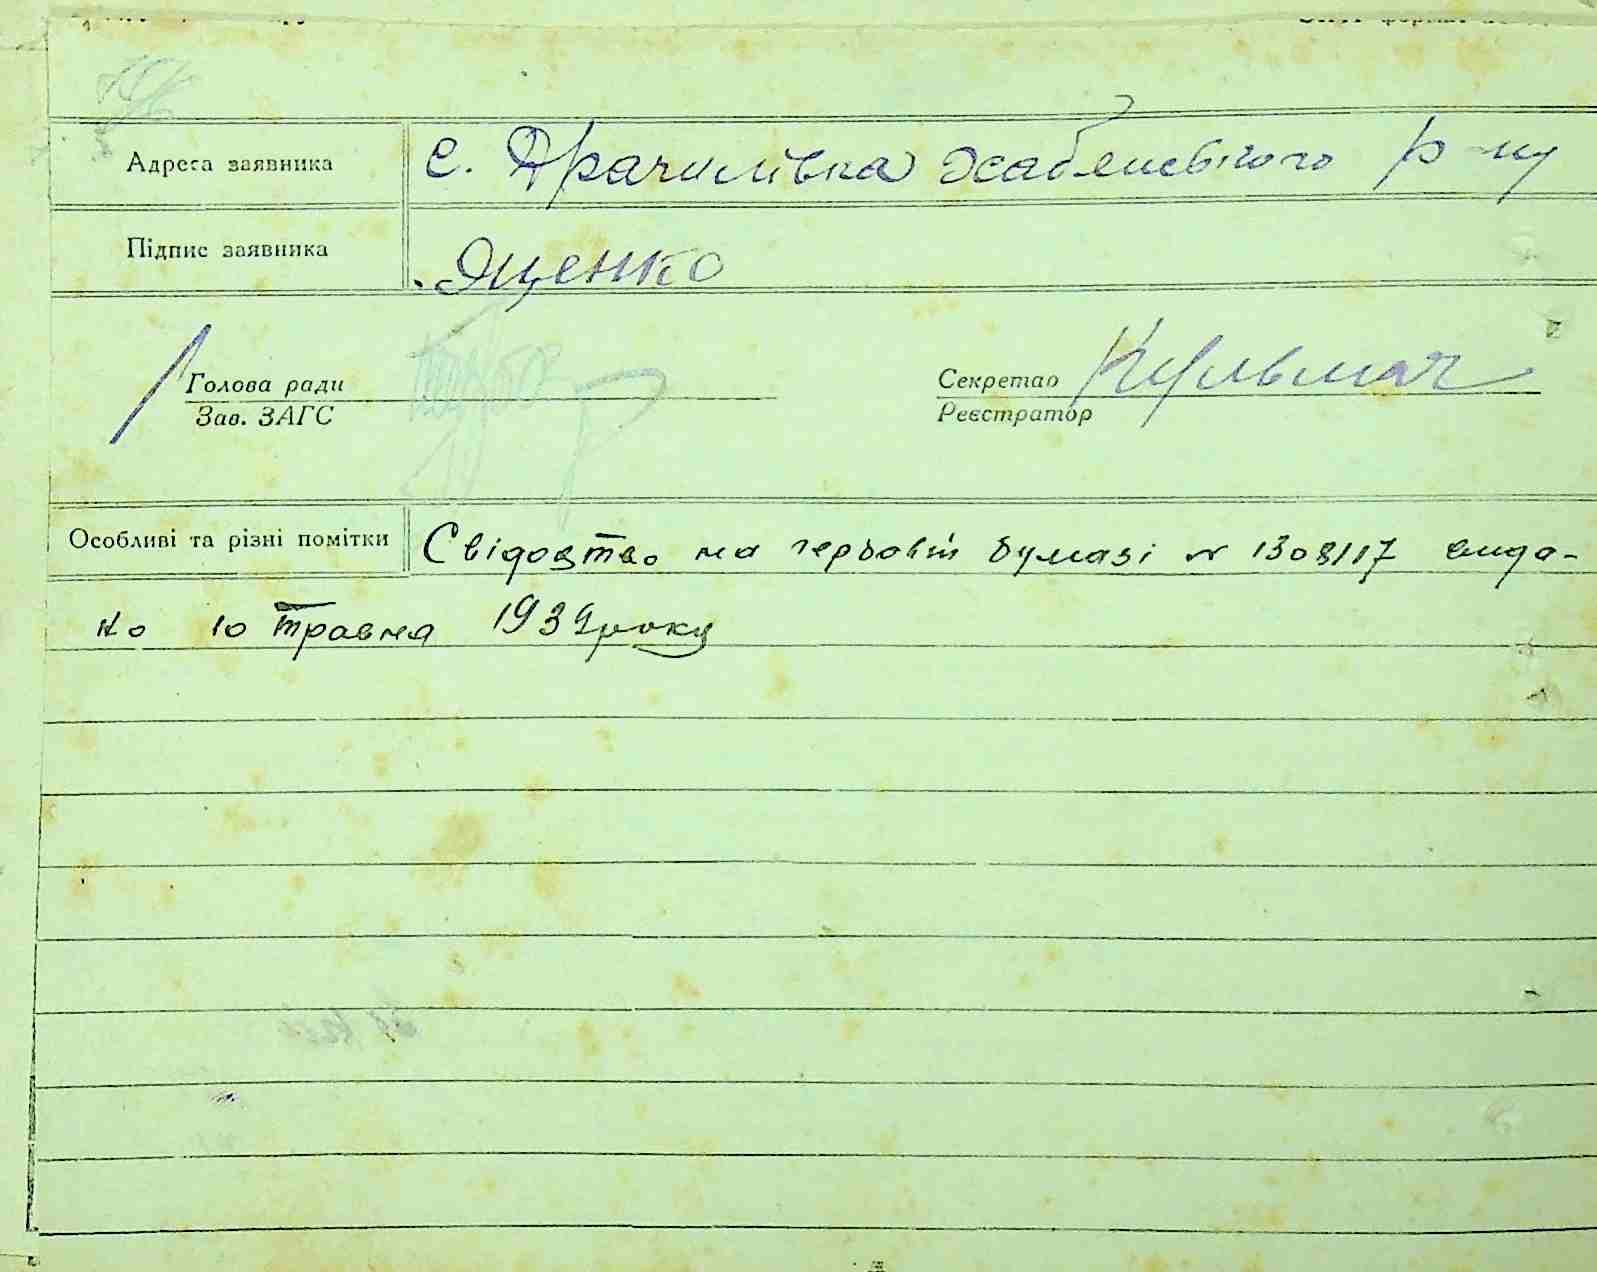 Адреса заявника с. Драчилівка Жабенєвського р-ну
Підпис заявника Яценко
Голова ради
Зав. ЗАГС
Секретар Кульмач
Реєстратор
Особливі та різні помітки Свідоцтво на гербовій бумазі № 1308117 вида-
но 10 травня 1939 року